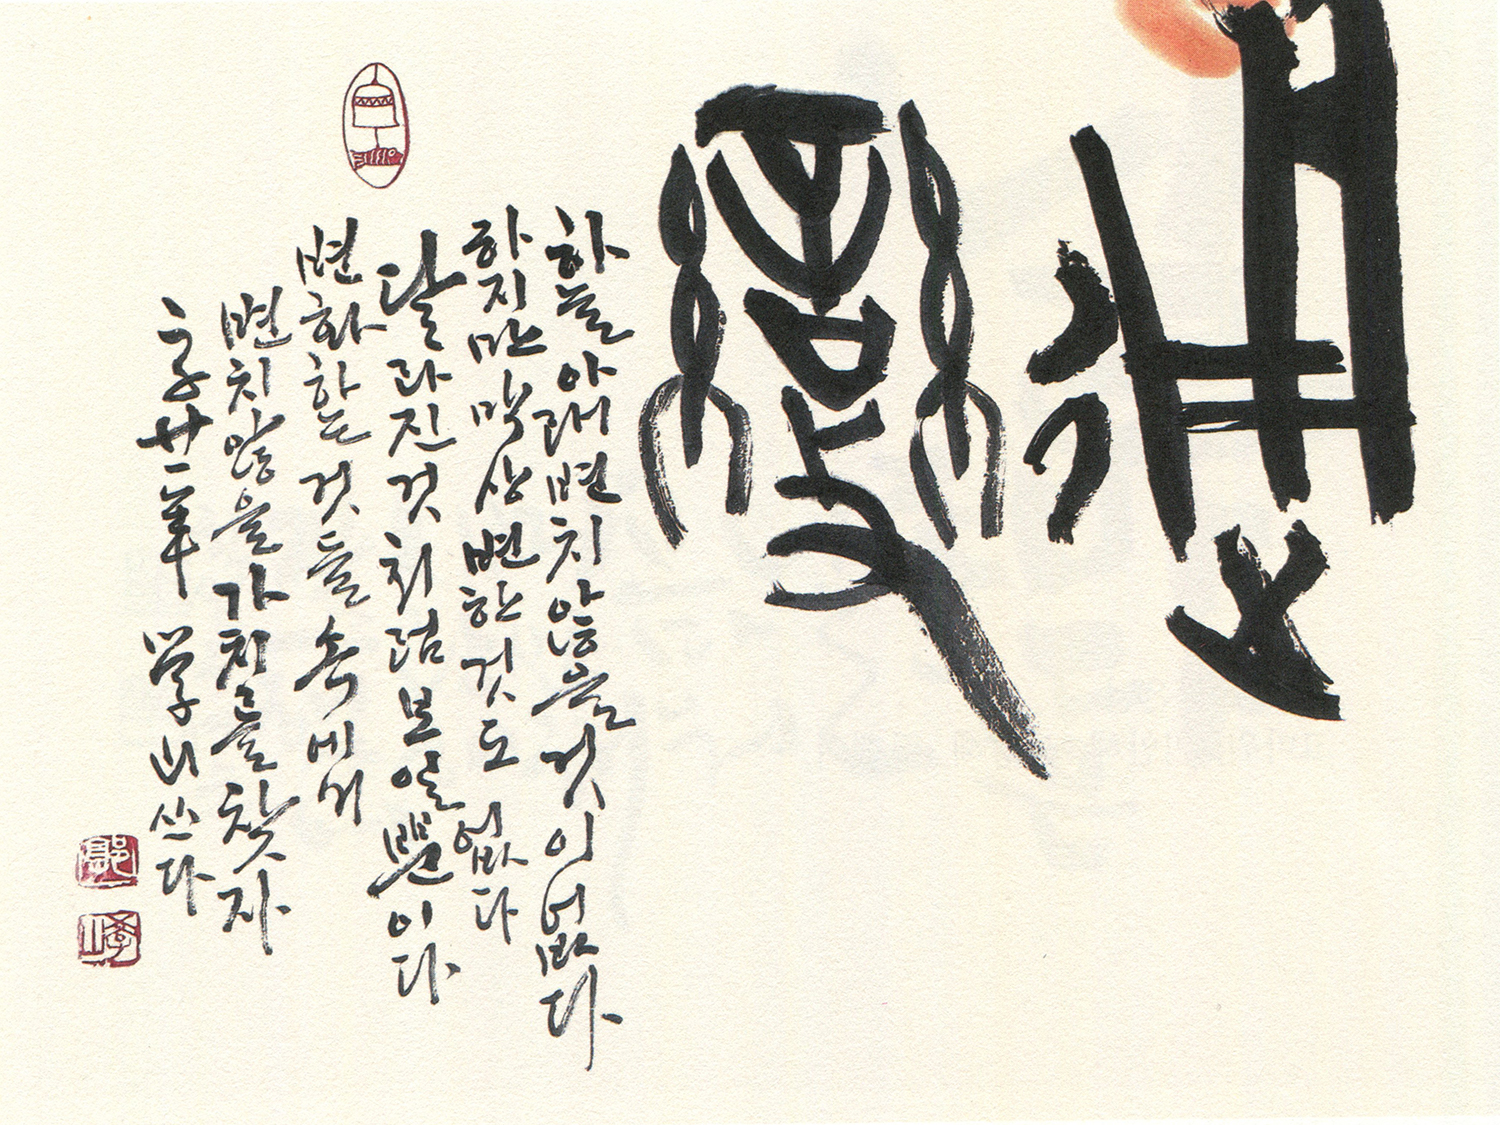 變
하늘 아래 변치 않을 것이 없다
하지만 막상 변한 것도 없다
달라진 것처럼 보일 뿐이다
변화하는 것들 속에서
변치 않을 가치를 찾자
学山 쓰다